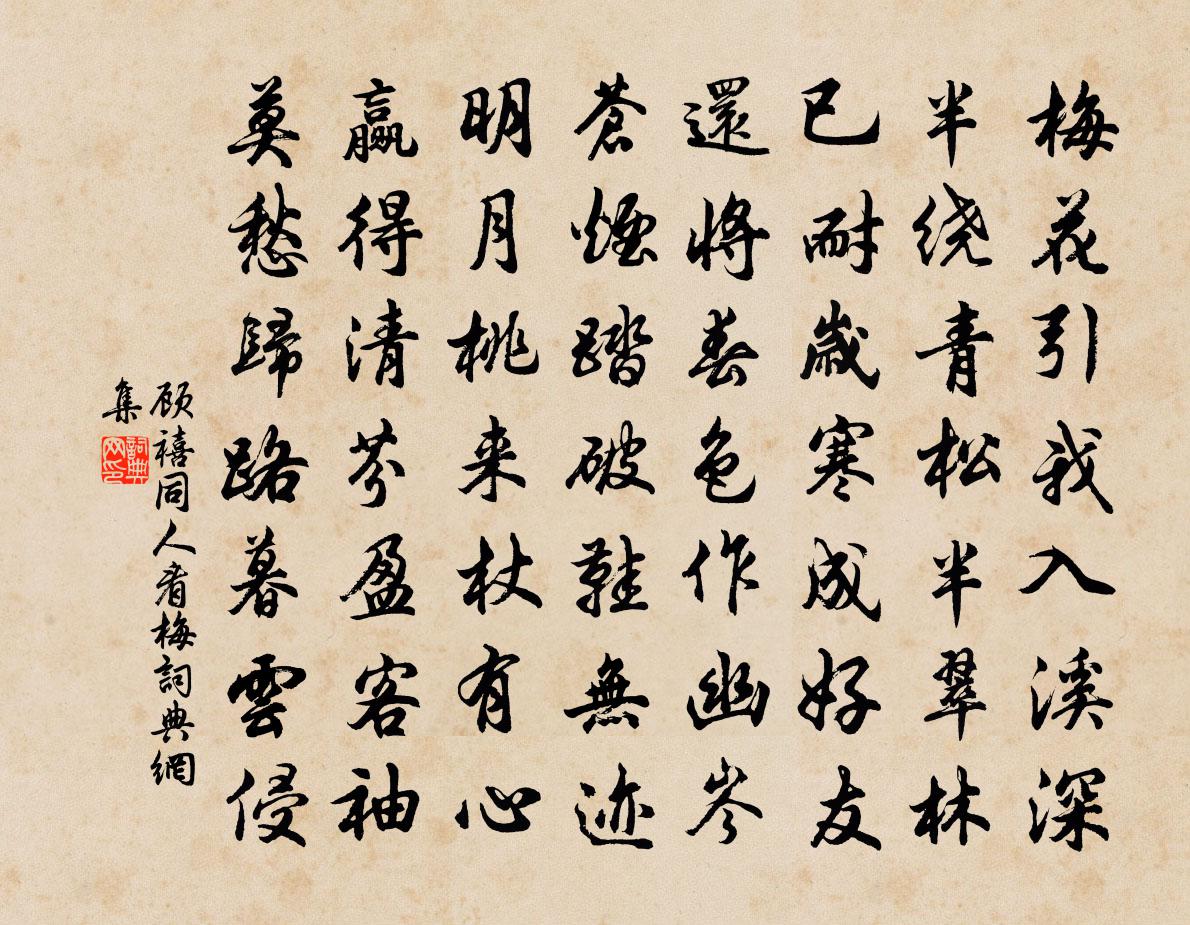 梅花引我入溪深
半绕青松半翠林
已耐歲寒成好友
還將春色作幽岑
蒼煙踏破鞋無迹
明月桃来杖有心
贏得清芬盈客袖
莫愁歸路暮雲侵
顾禧同人看梅詞典網
集
詞典网印